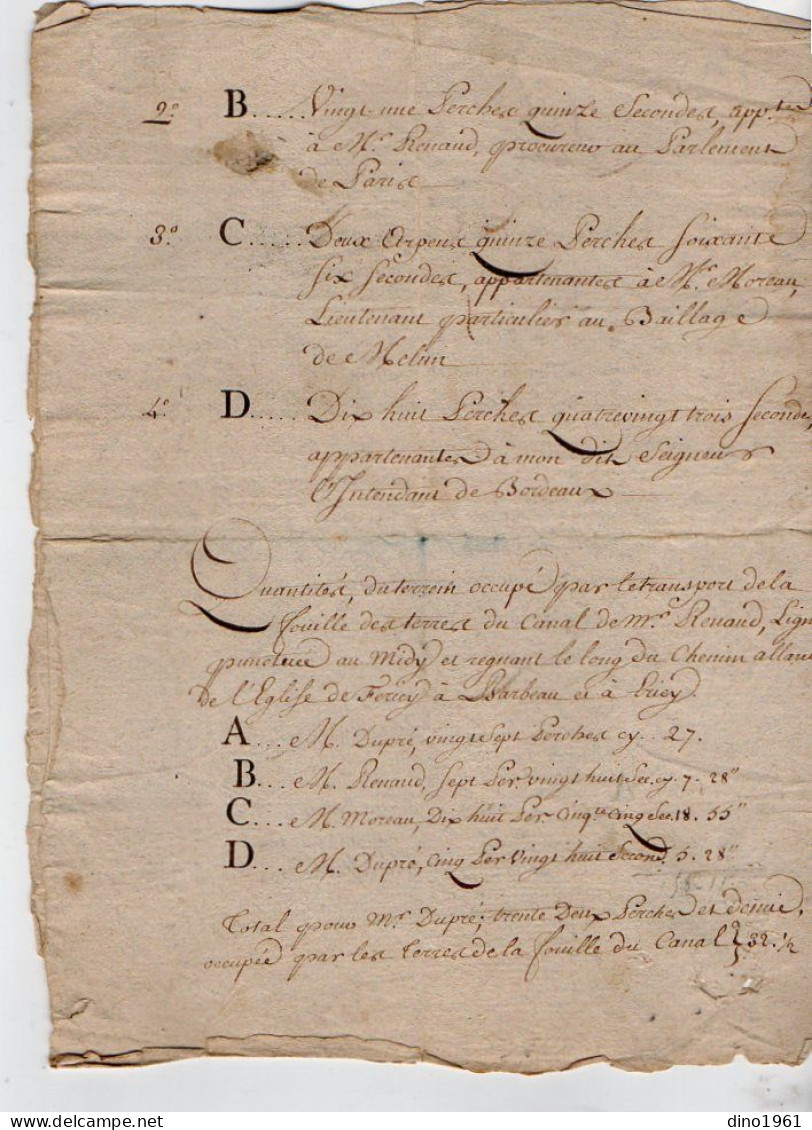 2.° B...... Vingt une Perches quinze Secondes, app.tes
à M.r Renaud, procureur au Parlement
de Paris
3.° C...... Deux Arpens quinze Perches soixante
six secondes, appartenantes à M.r Moreau,
Lieutenant particulier au Baillage
de Melun
4.° D..... Dix huit Perches quatrevingt trois secondes,
appartenantes à mon dit Seigneur
l'Intendant de Bordeaux
Quantités, du terrein occupé par le transport de la
fouille des terres du Canal de M.r Renaud, Lign
punctuée au Midy et regnant le long du Chemin allant
de l'Eglise de Fericy à Barbeau et à
A... M. Dupré, vingt Sept Perches cy.. 27.
B... M. Renaud, Sept Per. vingt huit Sec. cy. 7. 28"
C... M. Moreau, Dix huit Per. Cinq.te Cinq Sec. 18. 55"
D... M. Dupré, Cinq Per. Vingt huit Second. 5. 28"
Total pour M.r Dupré, trente Deux Perches et demie,
occupée par les terres de la fouille du Canal } 32. 1/2
dino1961